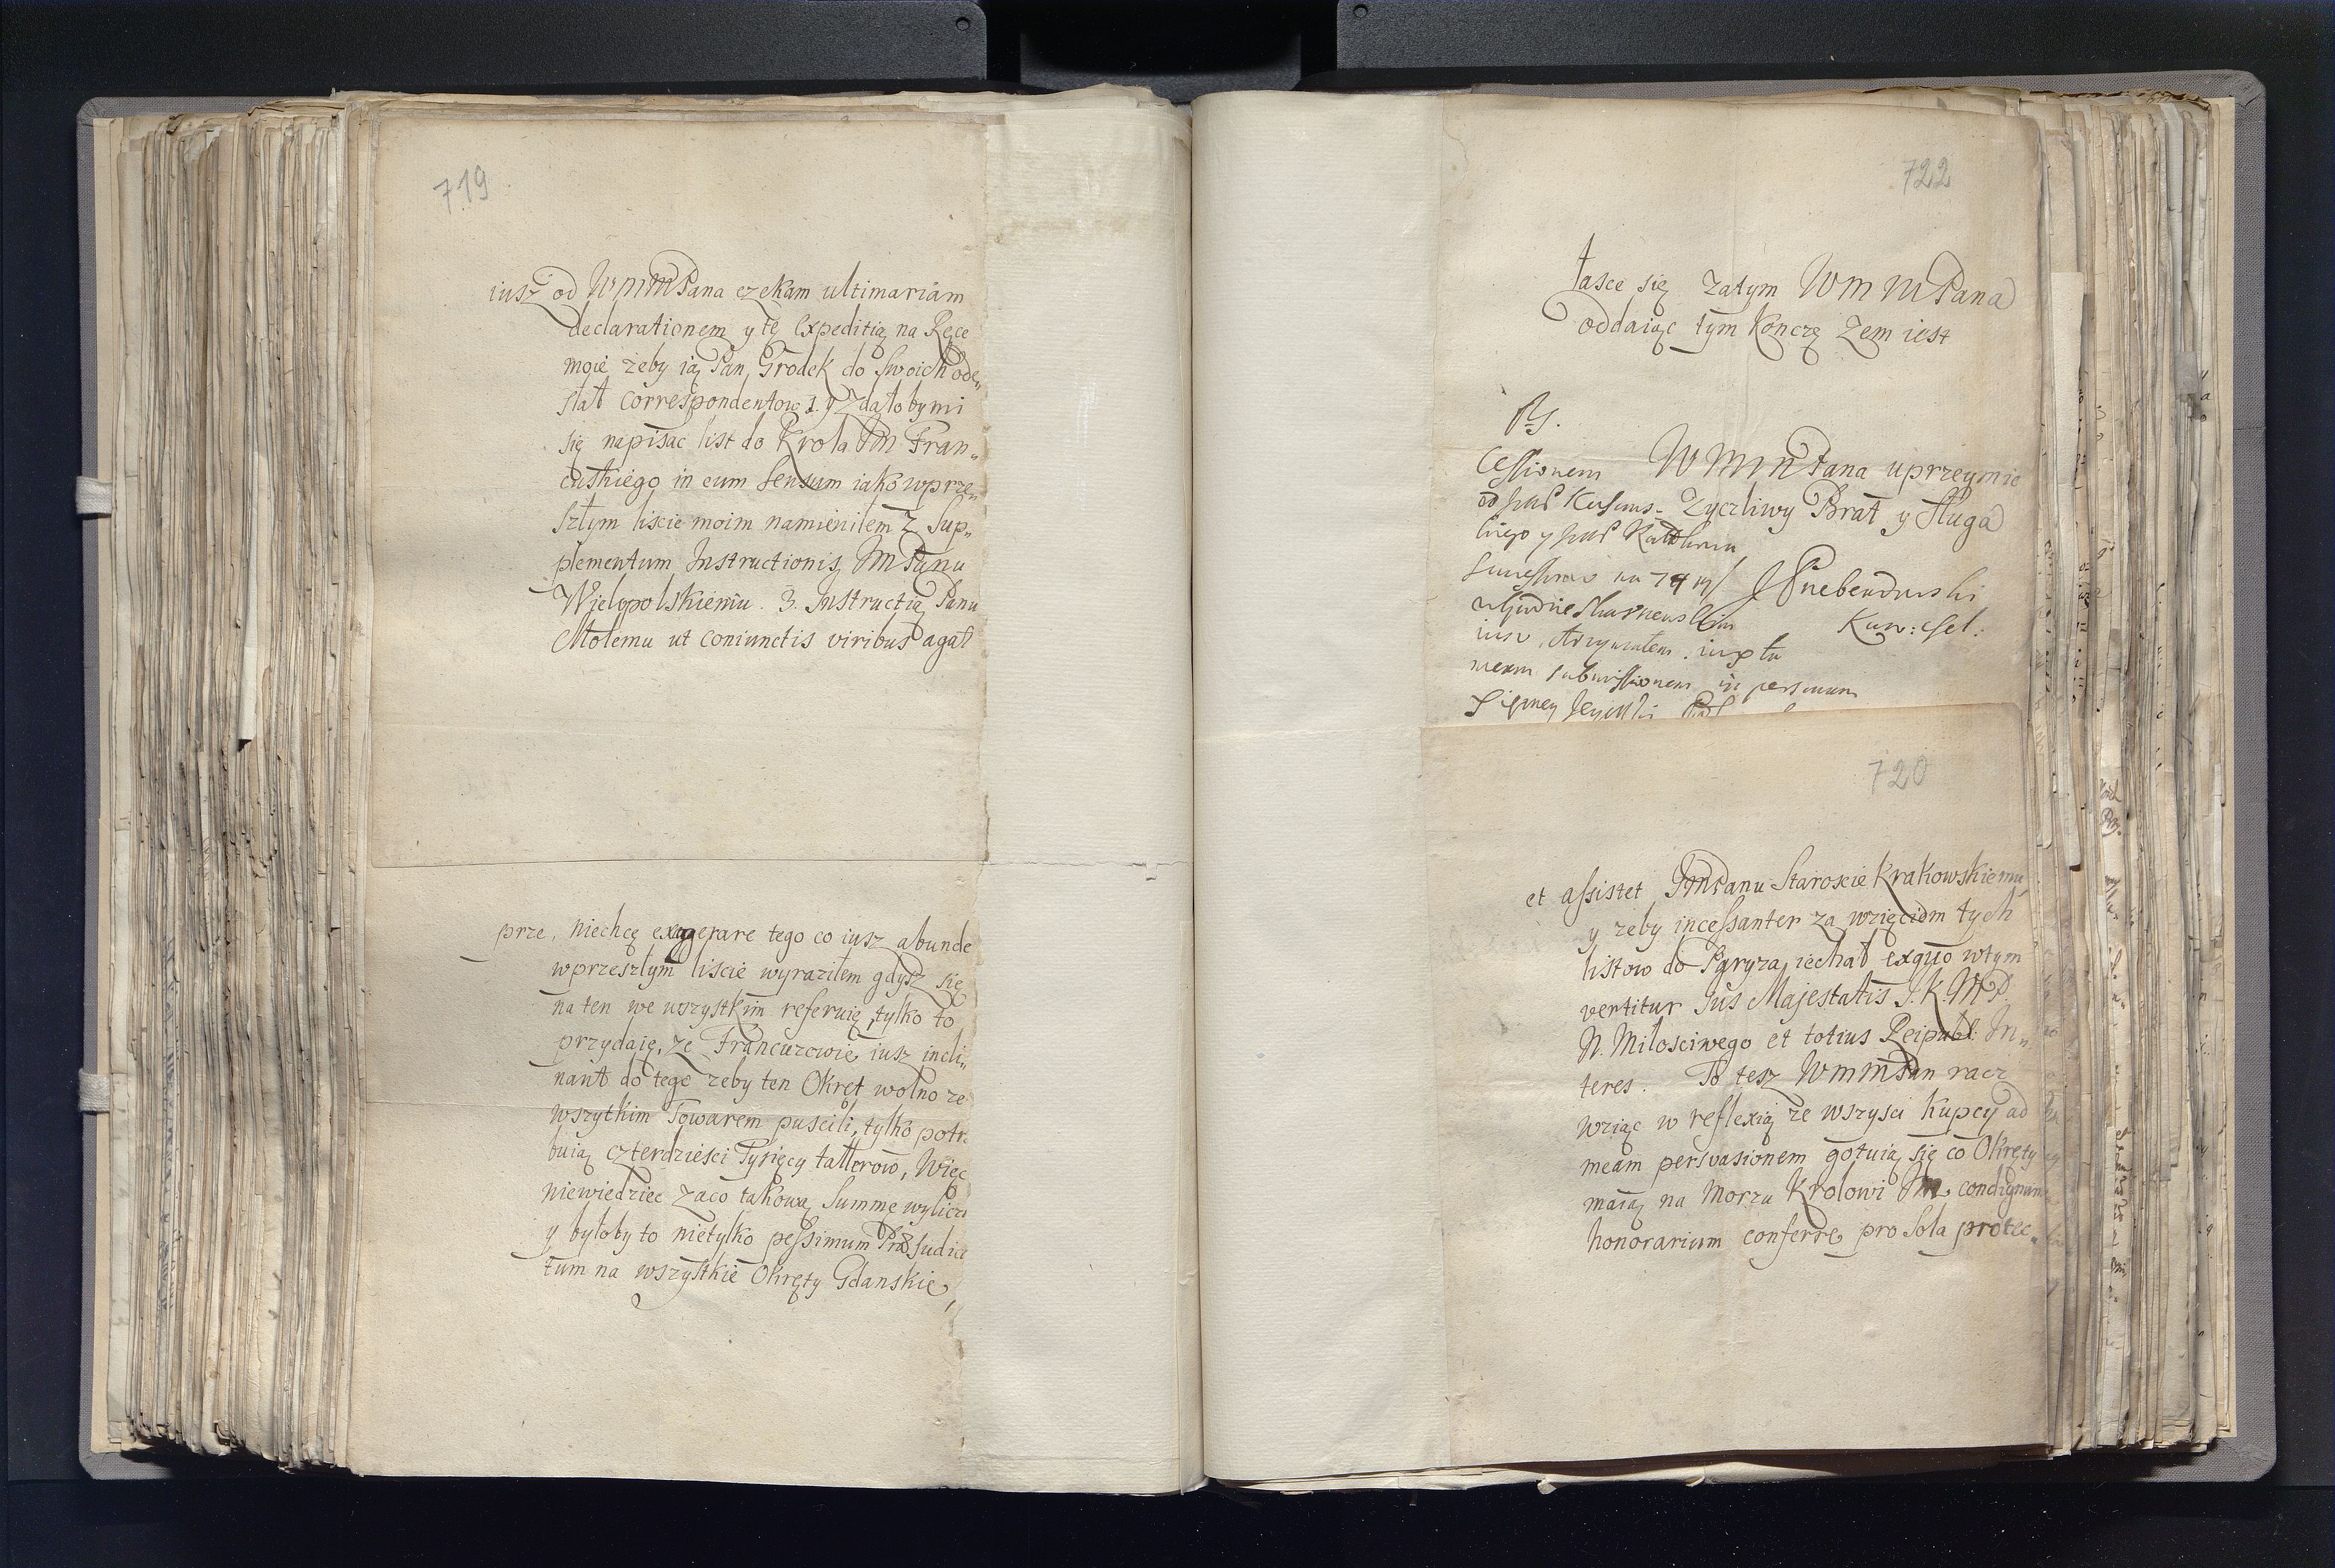 719
iusz od WMMPana czekam ultimariam
declarationem y tę expeditią na Ręce
moie żeby ią Pan Grodek do swoich ode„
słał correspondentow 1. Y zdałoby mi
się napisac list do Krola JM Fran„
cuskiego in eum sensum iako w prze„
szłym liscie moim namieniłem 2 Sup„
plementum Instructionis JMPanu
Wielopolskiemu. 3. Instructią Panu
Mołemu ut coniunctis viribus agat
prze, niechcę exaggerare tego co iusz abunde
wprzeszłym liscie wyraziłem gdysz się
na ten we wszystkim referuię, tylko to
przydaię, ze Francuzowie iusz incli„
nant do tego zeby ten Okręt wolno ze
wszytkim Towarem puscili, tylko potr
buią czterdziesci Tysięcy tallerow, Więc
niewiedziec zaco takową Summę wylicz
y byłoby to nietylko pessimum Præjudica
tum na wszystkie Okręty Gdanskie,
722
łasce się zatym WMMPana
oddaiąc tym konczę Zem iest
PS.
Cessionem
WMMPana uprzeymie
Zyczliwy Brat y Sługa
JPrebendowski
meam submissionem in personam
720
et assistet JMPanu Staroscie Krakowskiemu
y zeby incessanter za wzięciem tych
listow do Paryza iechał exquo wtym
vertitur Jus Majestatis J.K.M P.
N. Miłosciwego et totius Reipubl: In„
teres. To tesz WMMPan racz
wziąc w reflexią ze wszysci kupcy ad
meam persvasionem gotuią się co Okręty
maią na Morzu Krolowi JM condignum
honorarium conferre pro sola protec„